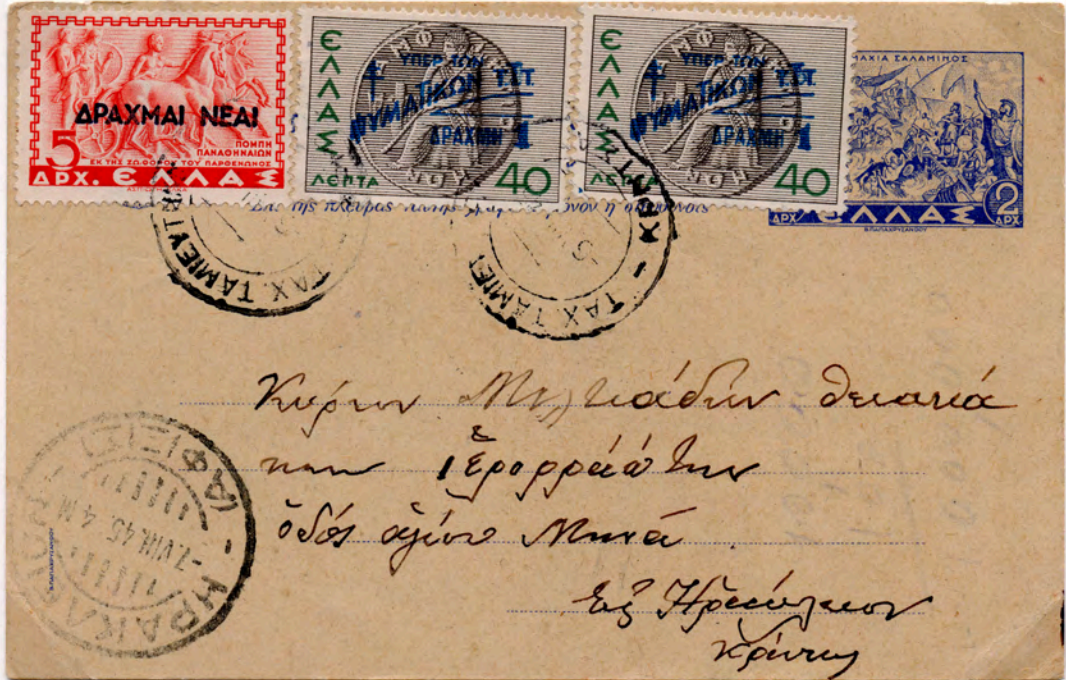 ΔΡΑΧΜΑΙ ΝΕΑΙ
5
ΠΟΜΠΗ
ΠΑΝΑΘΗΝΑΙΩΝ
ΕΚ ΤΗΣ ΖΩΟΦΟΡΟΥ ΤΟΥ ΠΑΡΘΕΝΩΝΟΣ
ΔΡΧ. ΕΛΛΑΣ
ΕΛΛΑΣ
ΥΠΕΡ ΤΩΝ
ΦΥΜΑΤΙΚΩΝ Τ.Τ.Τ.
ΔΡΑΧΜΗ 1
ΛΕΠΤΑ 40
ΕΛΛΑΣ
ΥΠΕΡ ΤΩΝ
ΦΥΜΑΤΙΚΩΝ Τ.Τ.Τ.
ΔΡΑΧΜΗ 1
ΛΕΠΤΑ 40
ΜΑΧΙΑ ΣΑΛΑΜΙΝΟΣ
ΔΡΧ ΕΛΛΑΣ 2 ΔΡΧ
ΤΑΧ. ΤΑΜΙΕΥΤ
ΤΑΧ. ΤΑΜΙΕΥΤ
ΗΡΑΚΛΕΙΟΝ - (ΑΦΙΞΙΣ)
-7.VIII.45. 4 M
Κύριον Μιλτιάδην
οδός αγίου Μηνά
Εις Ηράκλειον
Κρήτης